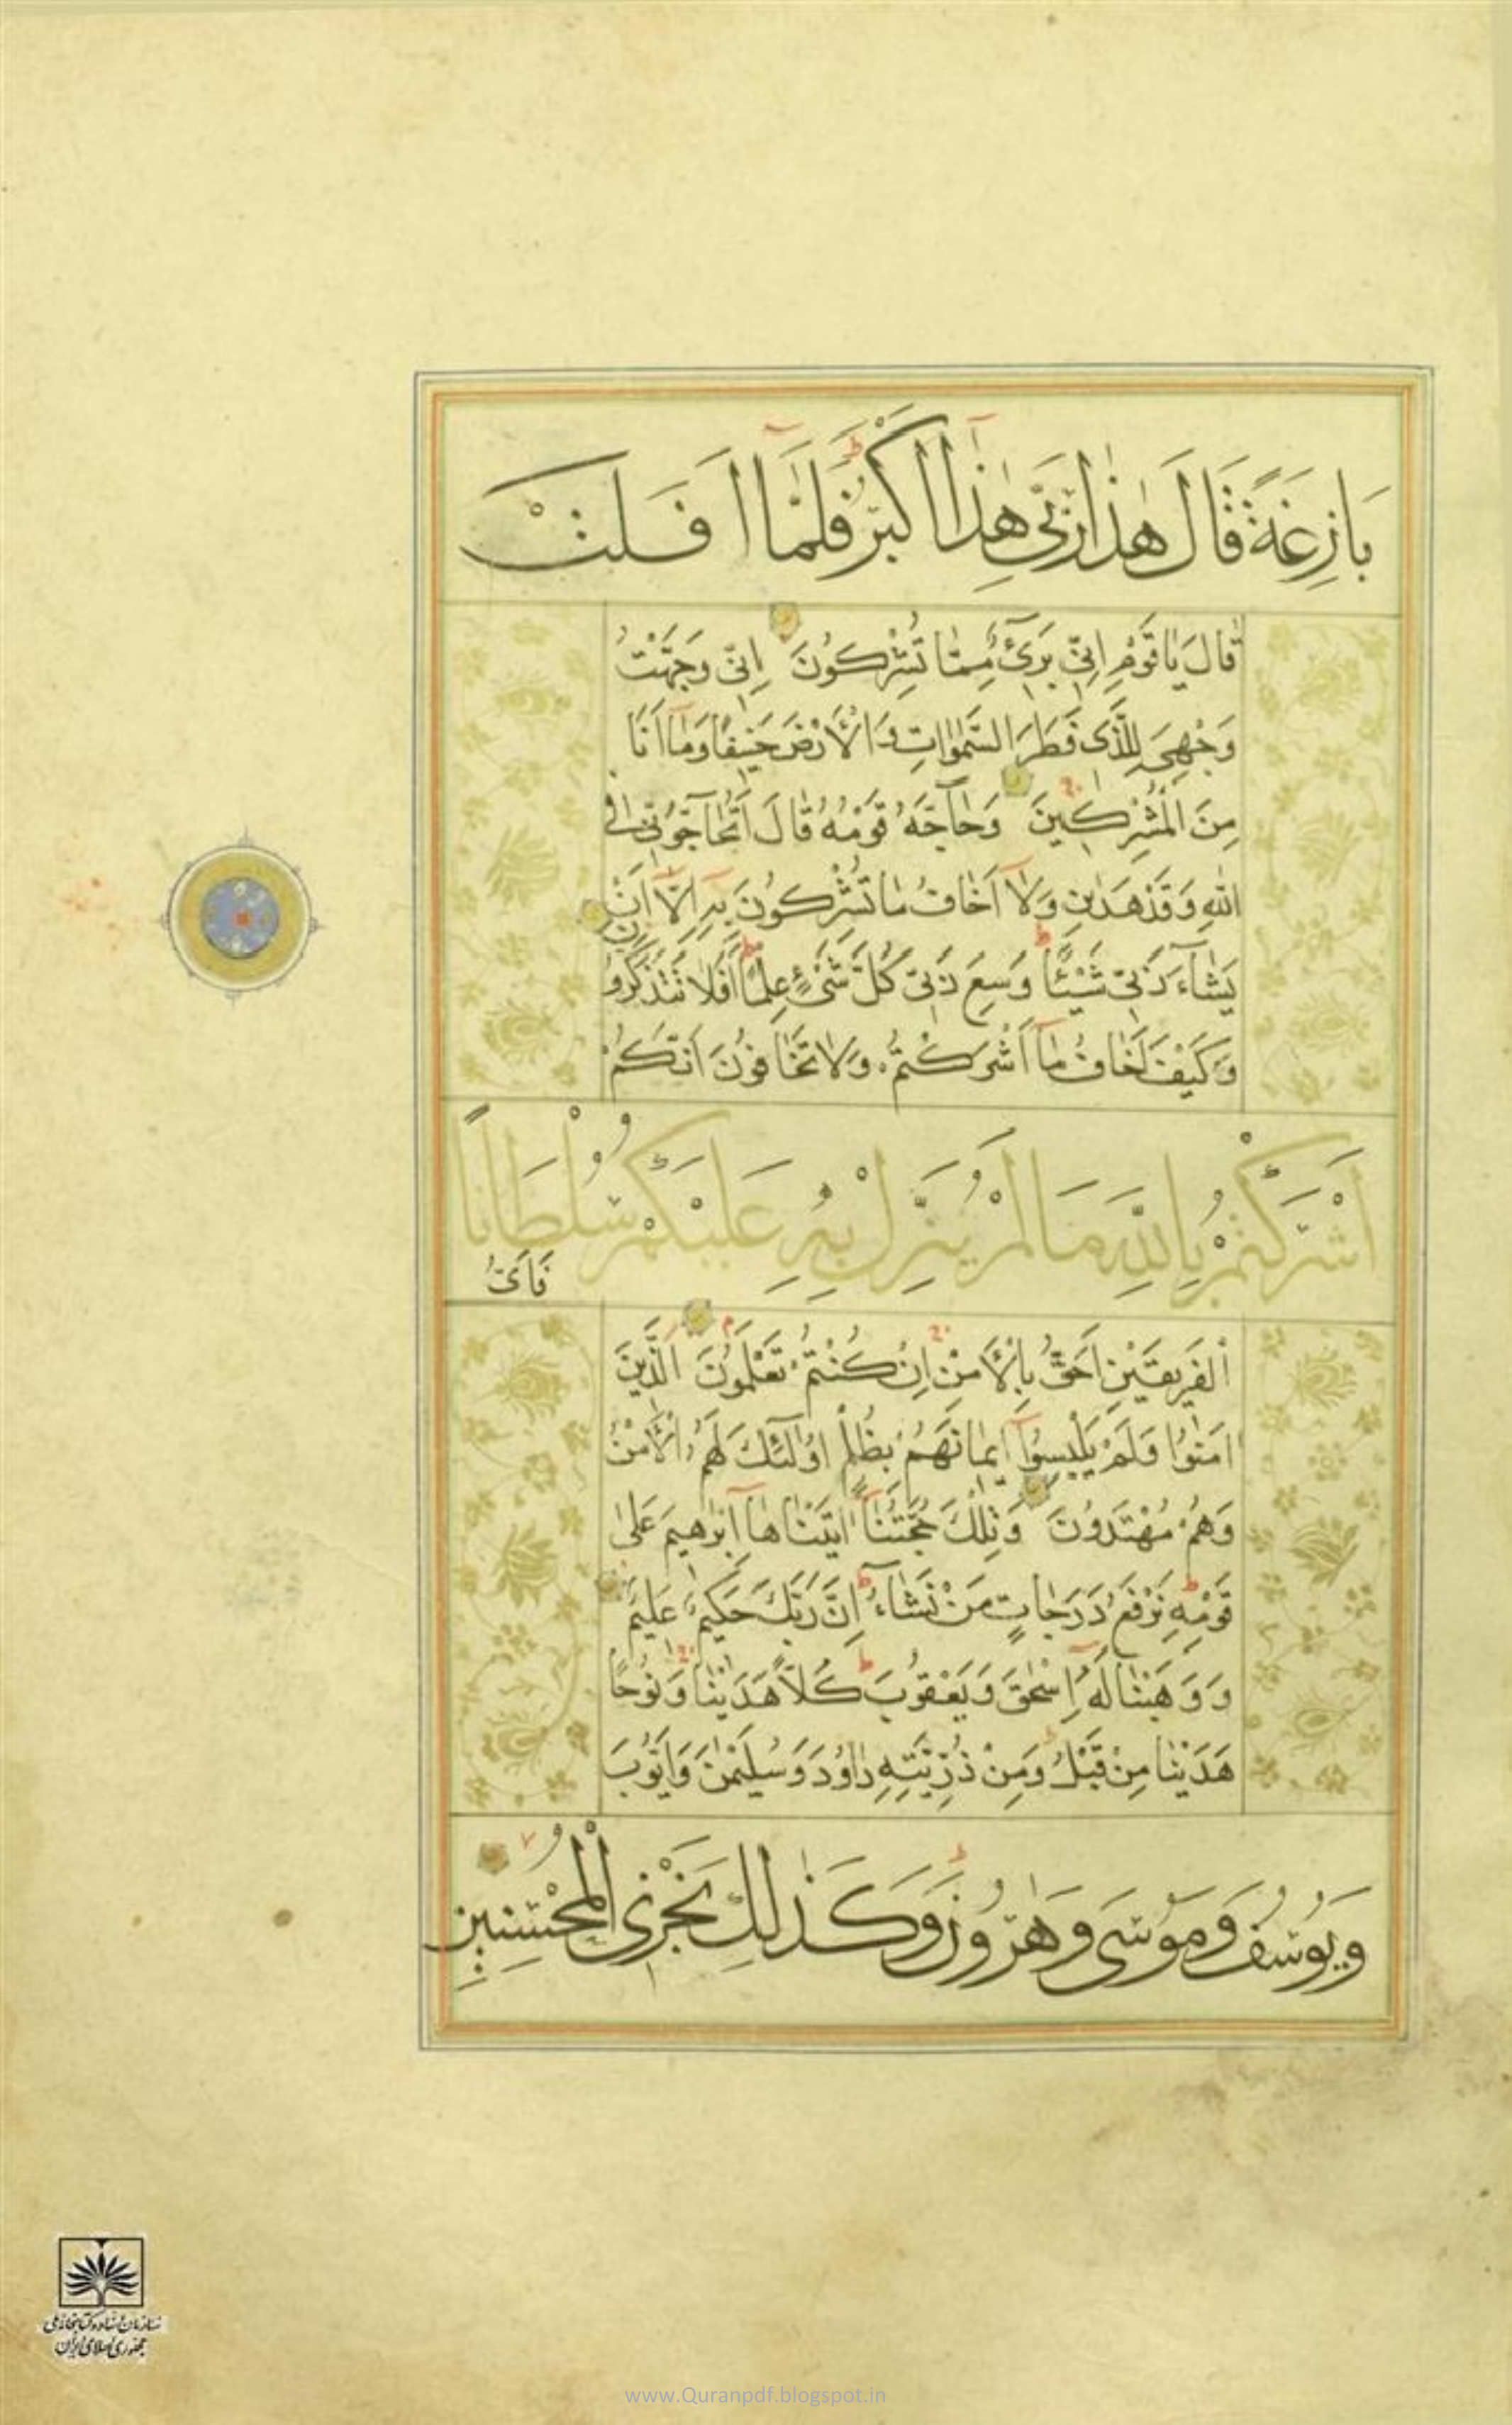 بَازِغَةً قَالَ هٰذَا رَبِّي هٰذَا اَكْبَرُ فَلَمَّا اَفَلَتْ
قَالَ يَاقَوْمِ اِنِّي بَرِئٌ مِمَّا تُشْرِكُونَ اِنِّي وَجَّهْتُ
وَجْهِيَ لِلَّذِي فَطَرَ السَّمٰوَاتِ وَالْاَرْضَ حَنِيفًا وَمَا اَنَا
مِنَ الْمُشْرِكِينَ وَحَاجَّهُ قَوْمُهُ قَالَ اَتُحَاجُّونِّي فِي
اللّٰهِ وَقَدْ هَدٰينِ وَلَا اَخَافُ مَا تُشْرِكُونَ بِهِ اِلَّا اَنْ
يَشَآءَ رَبِّي شَيْئًا وَسِعَ رَبِّي كُلَّ شَيْءٍ عِلْمًا اَفَلَا تَتَذَكَّرُونَ
وَكَيْفَ اَخَافُ مَا اَشْرَكْتُمْ وَلَا تَخَافُونَ اَنَّكُمْ
اَشْرَكْتُمْ بِاللّٰهِ مَا لَمْ يُنَزِّلْ بِهِ عَلَيْكُمْ سُلْطَانًا
فَاَيُّ
الْفَرِيقَيْنِ اَحَقُّ بِالْاَمْنِ اِنْ كُنْتُمْ تَعْلَمُونَ الَّذِينَ
اٰمَنُوا وَلَمْ يَلْبِسُوا اِيمَانَهُمْ بِظُلْمٍ اُولٰٓئِكَ لَهُمُ الْاَمْنُ
وَهُمْ مُهْتَدُونَ وَتِلْكَ حُجَّتُنَا اٰتَيْنَاهَا اِبْرٰهِيمَ عَلٰى
قَوْمِهِ نَرْفَعُ دَرَجَاتٍ مَنْ نَشَآءُ اِنَّ رَبَّكَ حَكِيمٌ عَلِيمٌ
وَوَهَبْنَا لَهُ اِسْحٰقَ وَيَعْقُوبَ كُلًّا هَدَيْنَا وَنُوحًا
هَدَيْنَا مِنْ قَبْلُ وَمِنْ ذُرِّيَّتِهِ دَاوُدَ وَسُلَيْمٰنَ وَاَيُّوبَ
وَيُوسُفَ وَمُوسٰى وَهٰرُونَ وَكَذٰلِكَ نَجْزِي الْمُحْسِنِينَ
سازمان اسناد و کتابخانه ملی
جمهوری اسلامی ایران
www.Quranpdf.blogspot.in